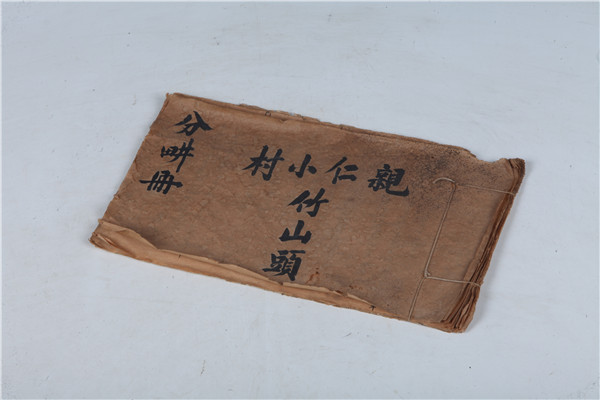 親仁村
小竹山頭
分畊冊